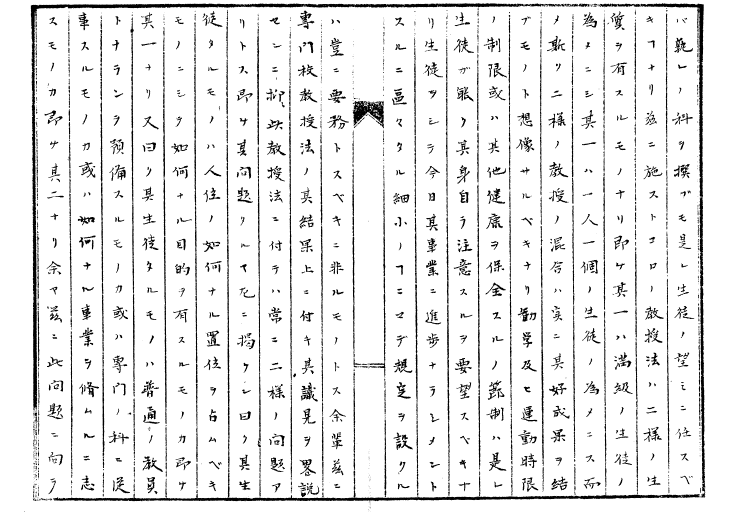 バ範レノ科ヲ撰ブモ是レ生徒ノ望ミニ任スベ
キフナリ茲ニ施ストコロノ教授法ハ二様ノ生
質ヲ有スルモノナリ即ケ其一ハ満級ノ生徒ノ
為メニシ其一ハ一人一個ノ生徒ノ為メニス而
メ斯ク二様ノ教授ノ混合ハ実ニ其好成果ヲ結
ブモノト想像サルベキナリ勤学及ヒ運動時限
ノ制限或ハ其他健康ヲ保全スルノ節制ハ是レ
生徒ガ能ク其身自ラ注意スルヲ要望スベキナ
リ生徒ヲシテ今日其事業ニ進歩ナラシメント
スルニ区マタル細小ノヿニマデ規定ヲ設クル
ハ豈ニ要務トスベキニ非ルモノトス余輩茲ニ
専門校教授法ノ其結果上ニ付キ其識見ヲ畧説
センニ抑此教授法ニ付テハ常ニ二様ノ問題ア
リトス即サ其問題クルヤ左ニ掲ケン曰ク其生
徒タルモノハ人住ノ如何ナル置位ヲ占ムベキ
モノニシタ如何ナル目的ヲ有スルモノカ即サ
其一ナリ又曰ク其生徒タルモノハ普通ノ教員
トナランヲ預備スルモノカ或ハ専門ノ科ニ従
事スルモノカ或ハ如何ナル事業ヲ脩ムルニ志
スモノカ即サ其二ナリ余ヤ茲ニ此問題ニ向ラ